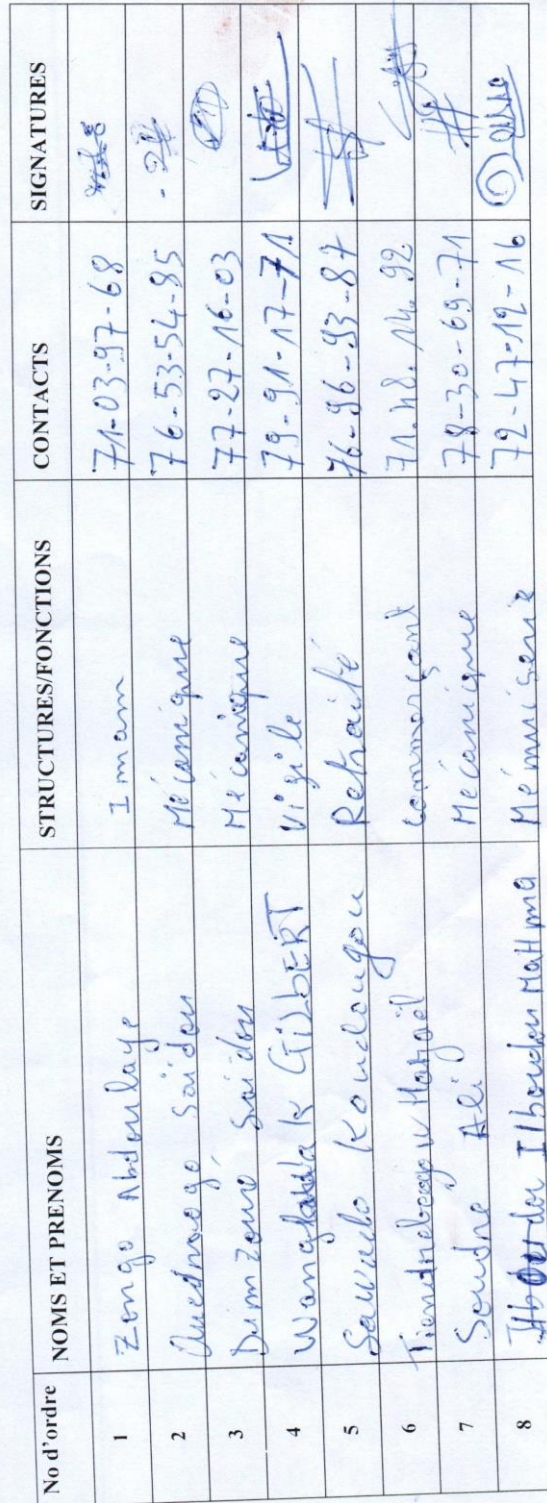 No d'ordre NOMS ET PRENOMS STRUCTURES/FONCTIONS CONTACTS SIGNATURES
1 Zongo Abdoulaye Imam 71-03-97-68
2 Ouedraogo Saïdou Mécanique 76-53-54-85
3 Saïdou Mécanique 77-27-16-03
4 GILBERT Vigile 79-91-17-71
5 Sawado Koudougou Retraité 76-96-93-87
6 commorçant 71.48.14.92
7 Soudre Ali Mécanique 78-30-69-71
8 Ilboudou 72-47-12-16